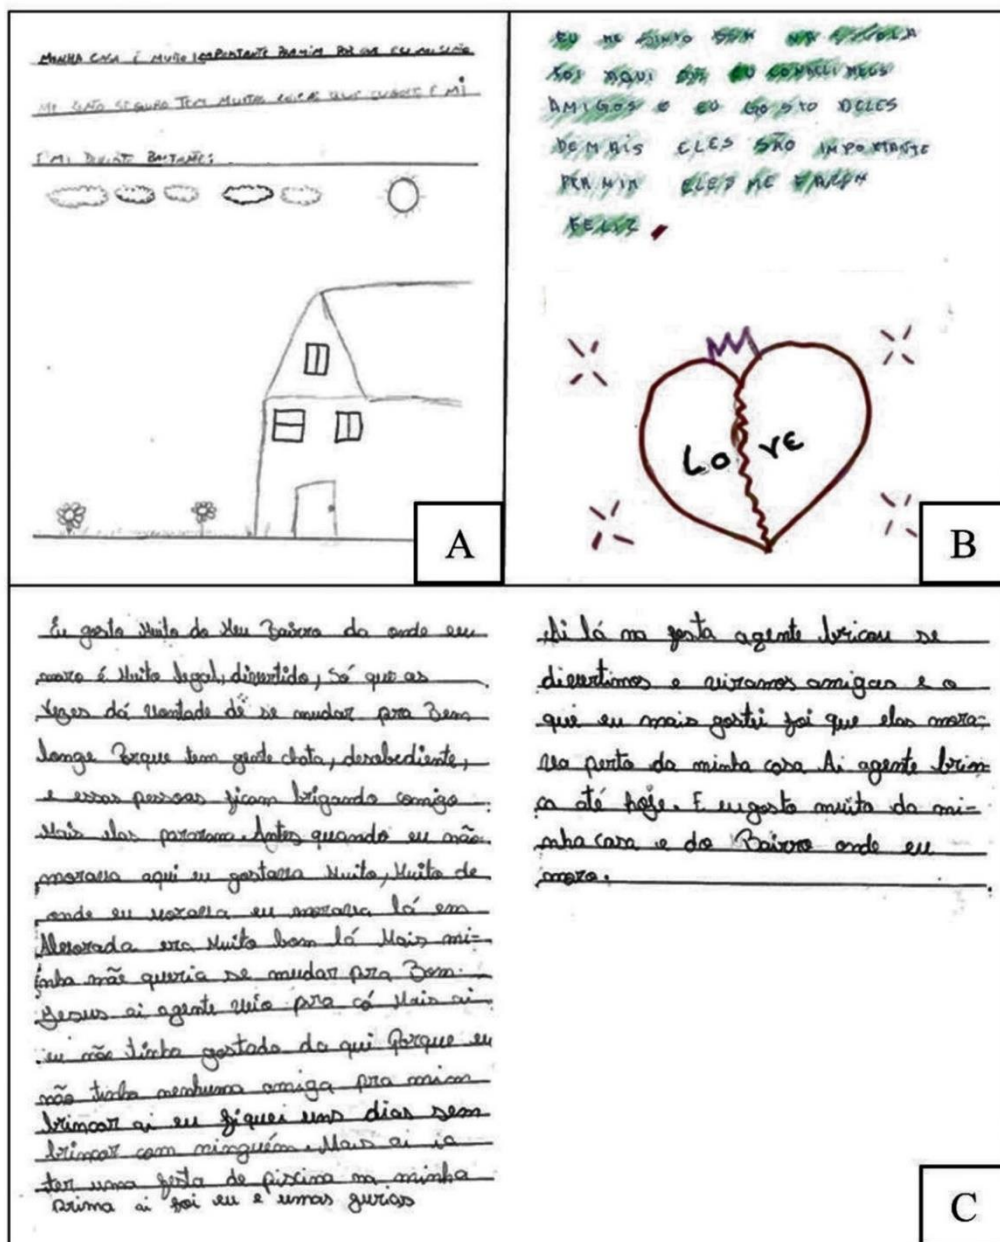 MINHA CASA É MUITO IMPORTANTE PARAMIM POR QUE EU
ME SINTO SEGURO TEM MUITAS COISAS QUE
E MI DIVIRTO BASTANTE;
A
EU ME SINTO BEM NA ESCOLA
FOI AQUI QUE EU CONHECI MEUS
AMIGOS E EU GOSTO DELES
DEMAIS ELES SÃO IMPORTANTE
PER MIM ELES ME FAZEM
FELIZ.
Love
B
Eu gosto Muito do Meu Bairro da onde eu
moro é Muito legal, divertido, Só que as
Vezes dá Vontade de se mudar pra Bem
longe Porque tem gente chata, desobediente,
e essas pessoas ficam brigando comigo
Mais elas pararam. Antes quando eu não
morava aqui eu gostava Muito, Muito de
onde eu morava eu morava lá em
Alvorada era Muito bom lá Mais mi-
nha mãe queria se mudar pra Bom
Jesus ai agente veio pra cá Mais ai
eu não tinha gostado da qui Porque eu
não tinha nenhuma amiga pra mim
brincar ai eu fiquei uns dias sem
brincar com ninguém. Mais ai ia
ter uma festa de piscina na minha
prima ai foi eu e umas gurias
Ai lá na festa agente bricou se
divertimos e viramos amigas e o
que eu mais gostei foi que elas mora-
va perto da minha casa Ai agente brin
ca até hoje. E eu gosto muito da mi-
nha casa e do Bairro onde eu
moro.
C